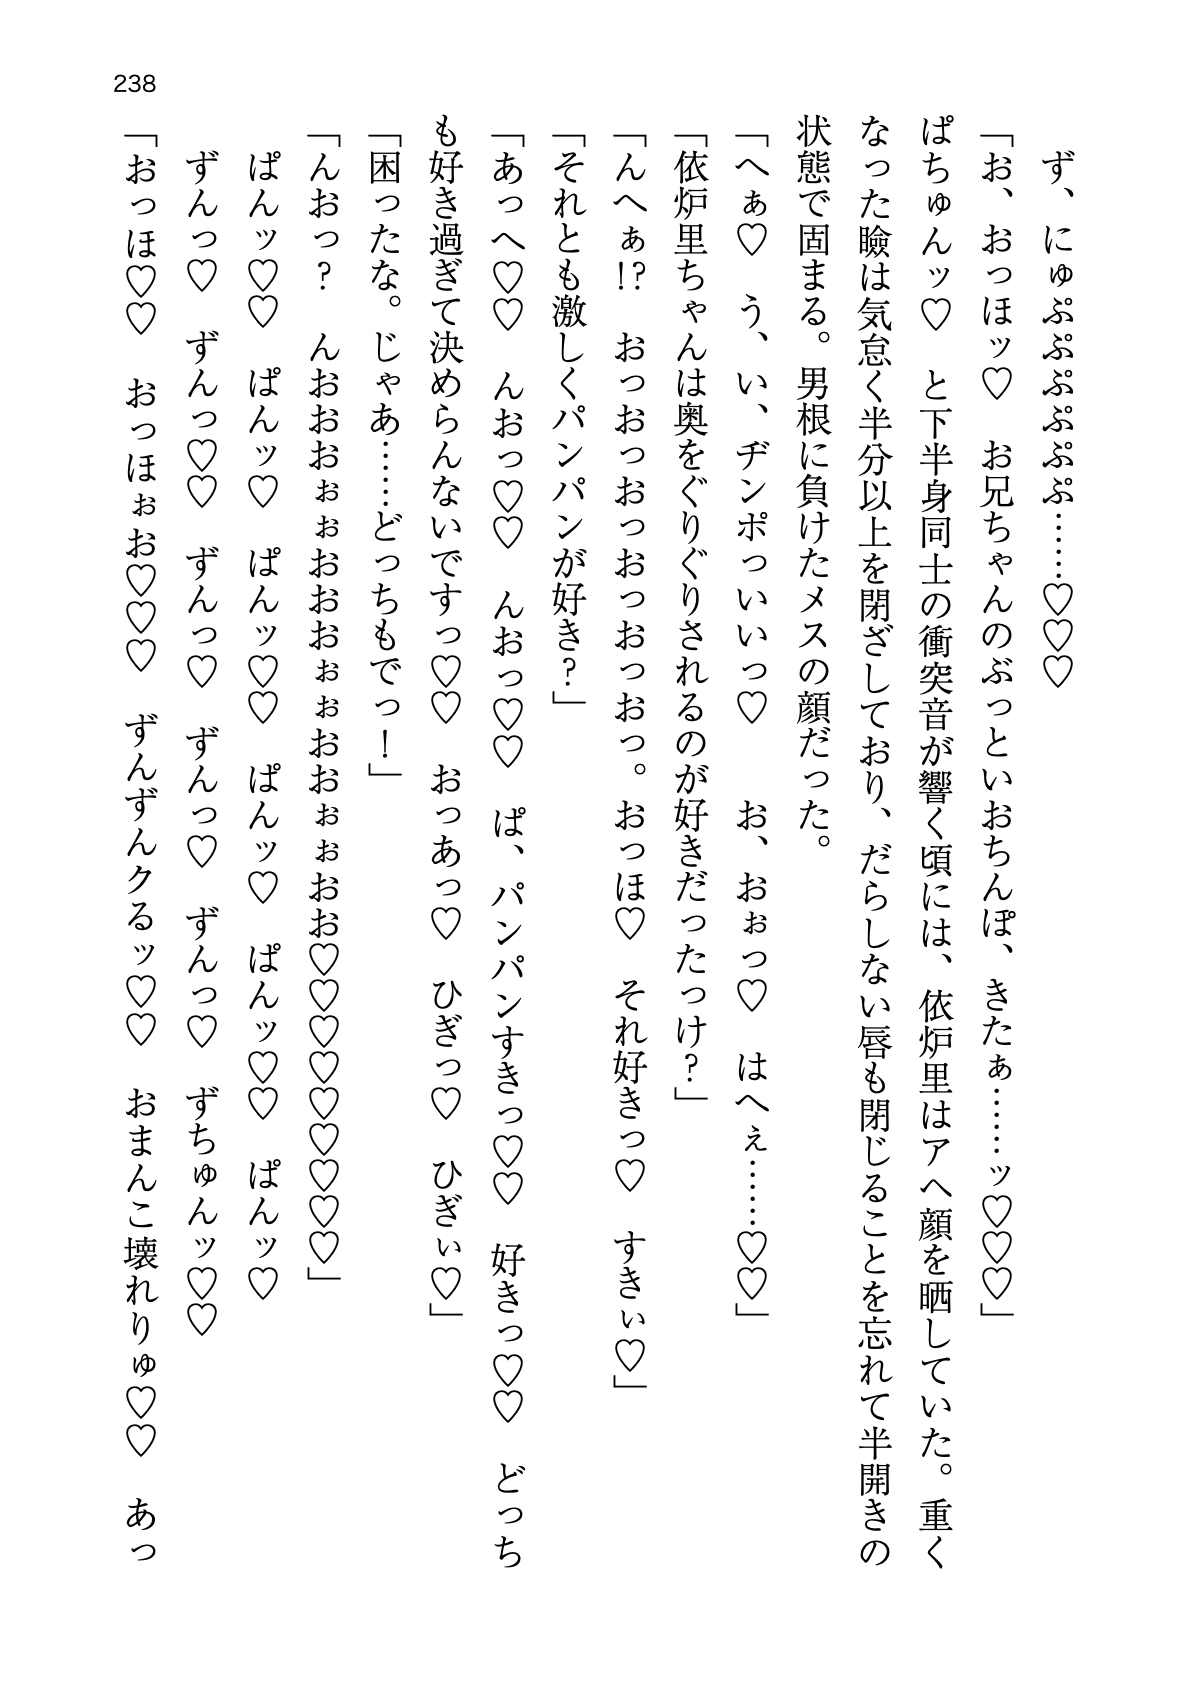 238
ず、にゅぷぷぷぷぷぷ……♡♡♡
「お、おっほッ♡　お兄ちゃんのぶっといおちんぽ、きたぁ……ッ♡♡♡」
ぱちゅんッ♡　と下半身同士の衝突音が響く頃には、依炉里はアヘ顔を晒していた。重く
なった瞼は気怠く半分以上を閉ざしており、だらしない唇も閉じることを忘れて半開きの
状態で固まる。男根に負けたメスの顔だった。
「へぁ♡　う、い、ヂンポっいいっ♡　　お、おぉっ♡　はへぇ……♡♡」
「依炉里ちゃんは奥をぐりぐりされるのが好きだったっけ？」
「んへぁ!?　おっおっおっおっおっおっ。おっほ♡　それ好きっ♡　すきぃ♡」
「それとも激しくパンパンが好き？」
「あっへ♡♡　んおっ♡♡　んおっ♡♡　ぱ、パンパンすきっ♡♡　好きっ♡♡　どっち
も好き過ぎて決めらんないですっ♡♡　おっあっ♡　ひぎっ♡　ひぎぃ♡」
「困ったな。じゃあ……どっちもでっ！」
「んおっ？　んおおおぉぉおおおぉぉおおぉぉおお♡♡♡♡♡♡♡♡♡」
ぱんッ♡♡　ぱんッ♡　ぱんッ♡♡　ぱんッ♡　ぱんッ♡♡　ぱんッ♡
ずんっ♡　ずんっ♡♡　ずんっ♡　ずんっ♡　ずんっ♡　ずちゅんッ♡♡
「おっほ♡♡　おっほぉお♡♡♡　ずんずんクるッ♡♡　おまんこ壊れりゅ♡♡　あっ